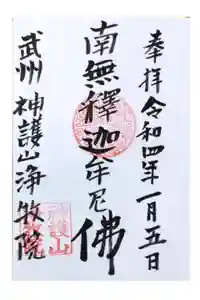 奉拝 令和四年一月五日
南無釋迦牟尼佛
武州 神護山浄牧院